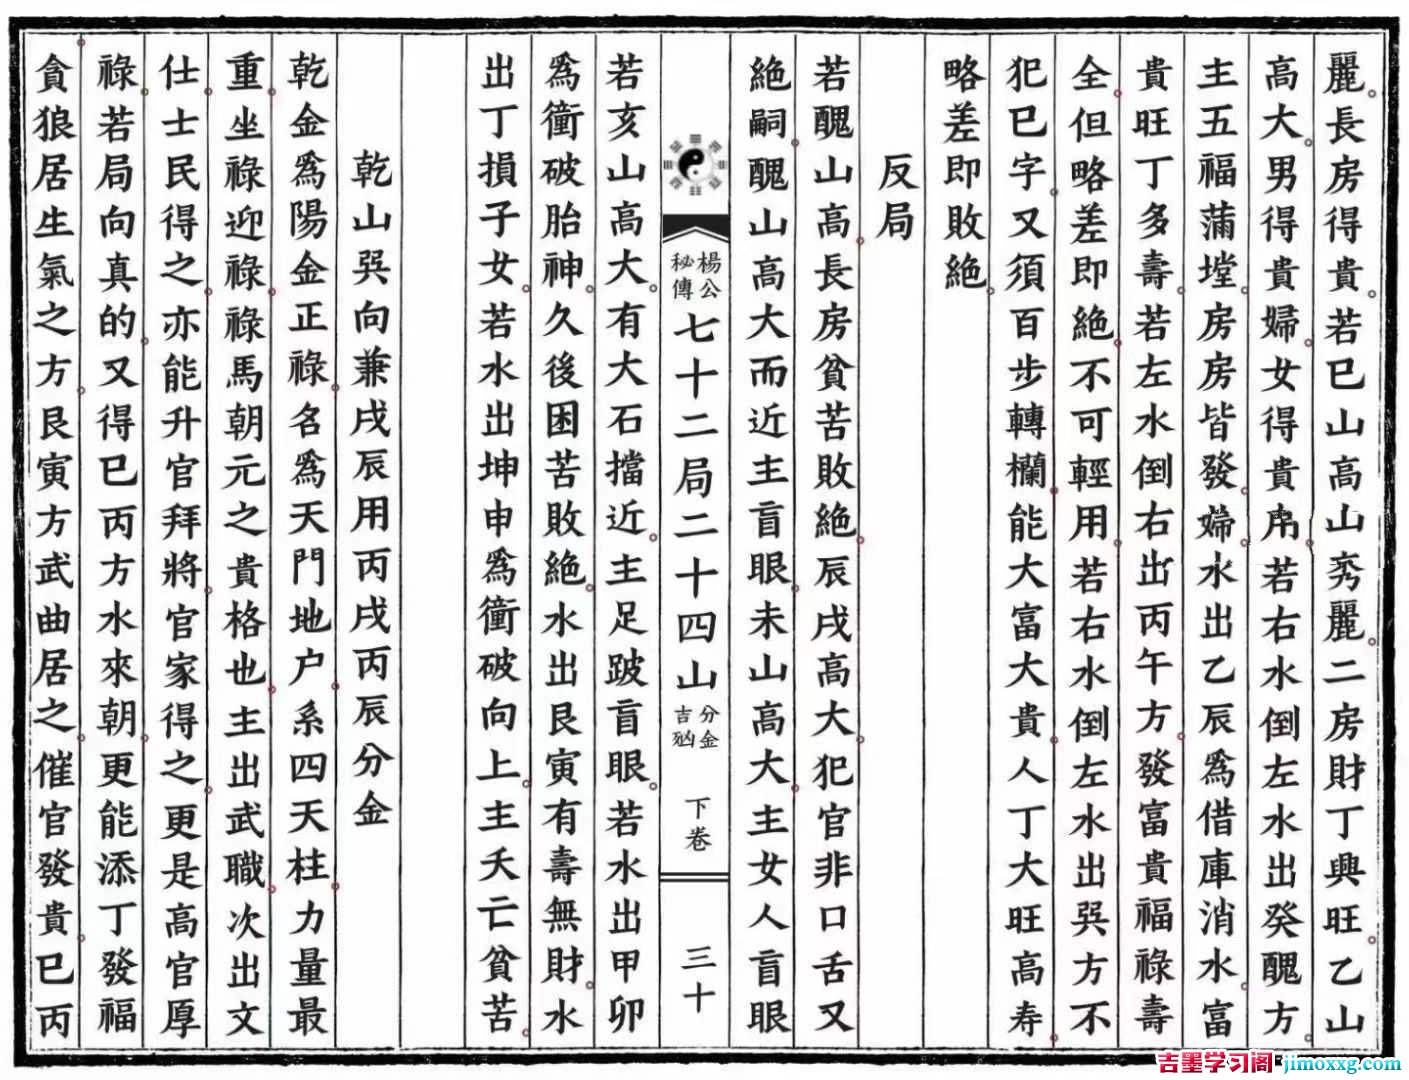 麗長房得貴若巳山高山秀麗二房財丁興旺乙山
高大男得貴婦女得貴帛若右水倒左水出癸醜方
主五福蒲堂房房皆發婦水出乙辰爲借庫消水富
貴旺丁多壽若左水倒右出丙午方發富貴福祿壽
全但略差即絶不可輕用若右水倒左水出巽方不
犯巳字又須百步轉欄能大富大貴人丁大旺高寿
略差即敗絶
反局
若醜山高長房貧苦敗絶辰戌高大犯官非口舌又
絶嗣醜山高大而近主盲眼未山高大主女人盲眼
楊公秘傳七十二局二十四山分金吉凶 下卷 三十
若亥山高大有大石擋近主足跛盲眼若水出甲卯
爲衝破胎神久後困苦敗絶水出艮寅有壽無財水
出丁損子女若水出坤申爲衝破向上主夭亡貧苦
乾山巽向兼戌辰用丙戌丙辰分金
乾金爲陽金正祿名爲天門地户系四天柱力量最
重坐祿迎祿祿馬朝元之貴格也主出武職次出文
仕士民得之亦能升官拜將官家得之更是高官厚
祿若局向真的又得巳丙方水來朝更能添丁發福
貪狼居生氣之方艮寅方武曲居之催官發貴巳丙
吉墨学习阁 jimoxxg.com